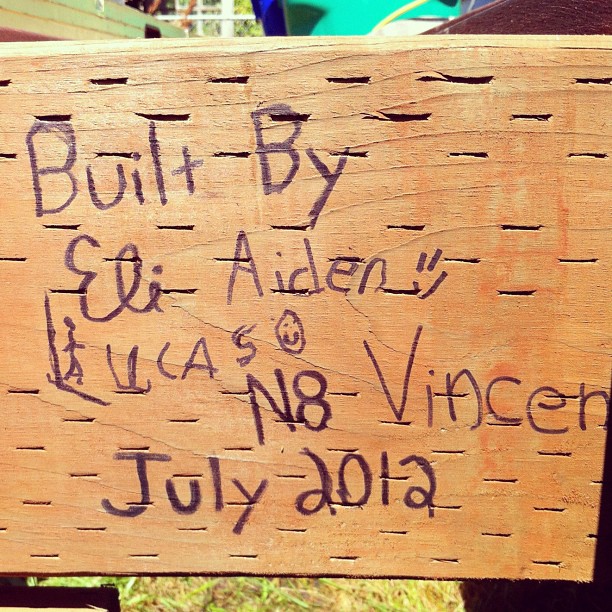 Built By
Eli Aiden
LUCAS
N8 Vincen
July 2012